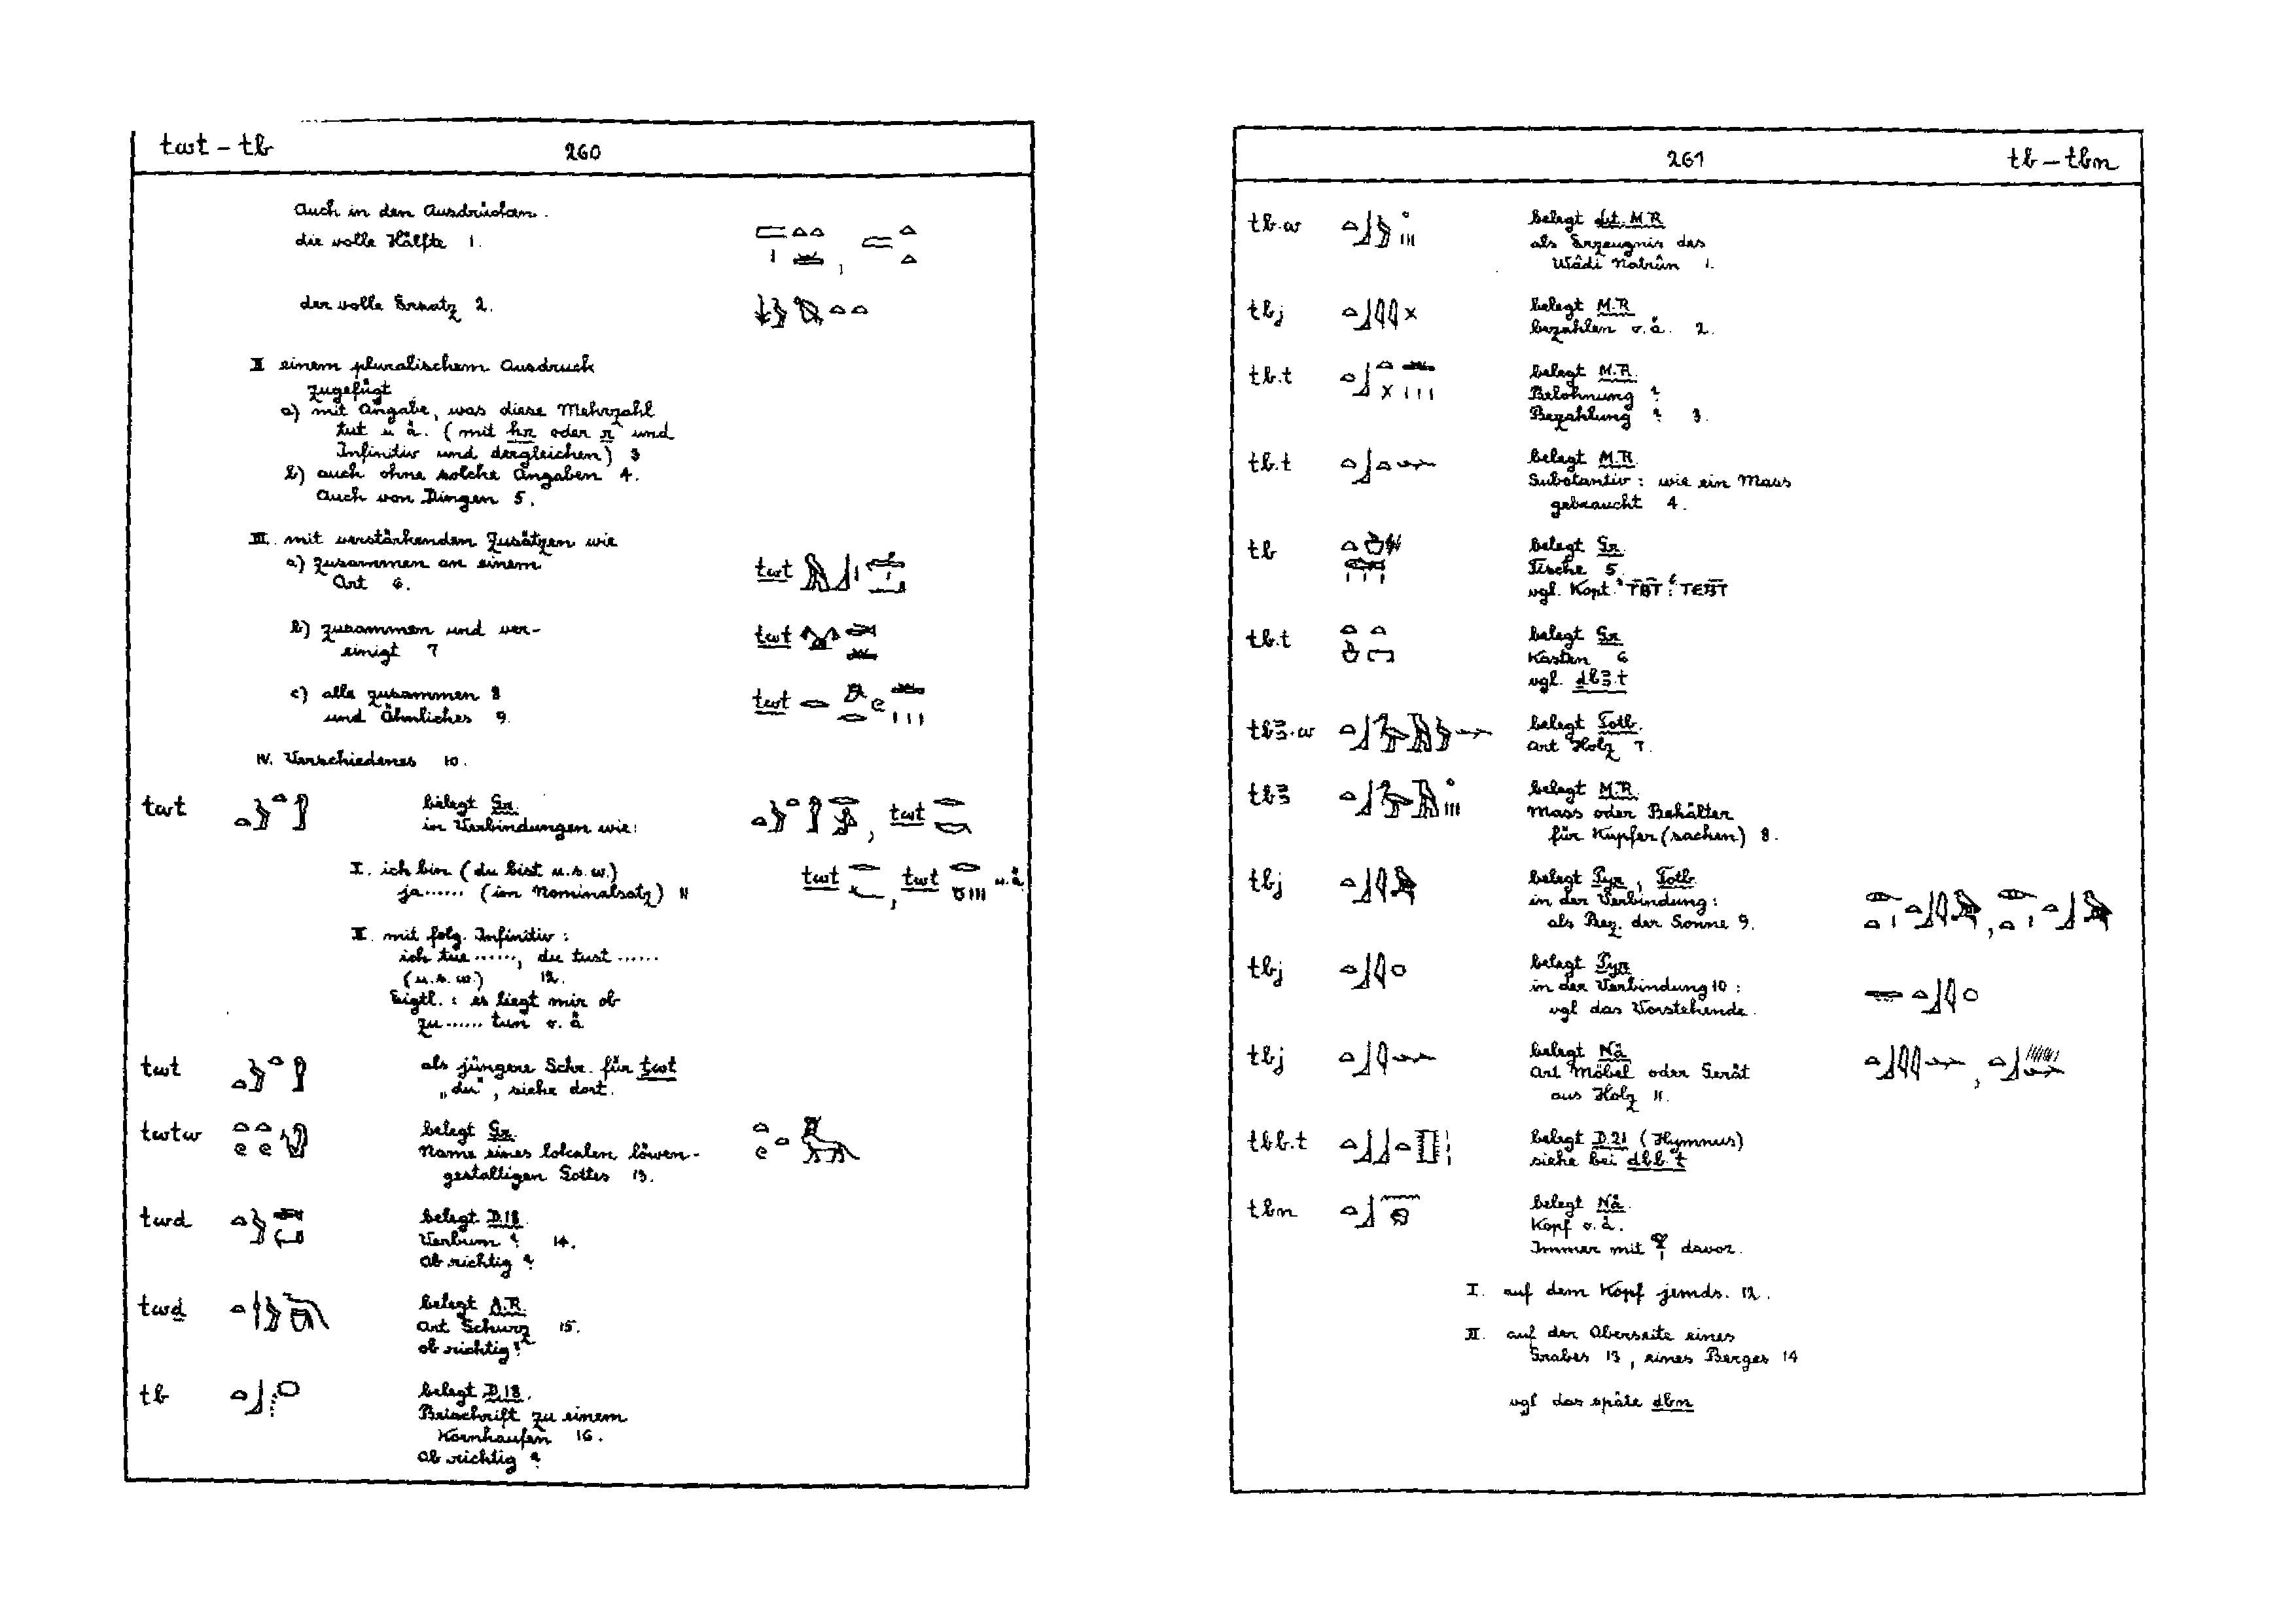 twt – tb
260
Auch in den Ausdrücken.
die volle Hälfte 1.
der volle Ersatz 2.
II einem pluralischem Ausdruck
zugefügt
a) mit Angabe, was diese Mehrzahl
tut u. ä. (mit ḥr oder r und
Infinitiv und dergleichen) 3
b) auch ohne solche Angaben 4.
Auch von Dingen 5.
III. mit verstärkendem Zusätzen wie
a) zusammen an einem
Ort 6.
twt
b) zusammen und ver-
einigt 7
twt
c) alle zusammen 8
und Ähnliches 9.
twt
IV. Verschiedenes 10.
twt
belegt Gr.
in Verbindungen wie:
, twt
I. ich bin (du bist u.s.w.)
ja...... (im Nominalsatz) 11
twt , twt u.ä
II. mit folg. Infinitiv:
ich tue ......, du tust ......
(u.s.w.) 12.
Eigtl.: es liegt mir ob
zu ...... tun o. ä
twt
als jüngere Schr. für ṯwt
„du", siehe dort.
twtw
belegt Gr.
Name eines lokalen löwen-
gestaltigen Gottes 13.
twd
belegt D.18.
Verbum ? 14.
Ob richtig ?
twḏ
belegt A.R.
Art Schurz 15.
ob richtig ?
tb
belegt D.18.
Beischrift zu einem
Kornhaufen 16.
Ob richtig ?
261
tb – tbn
tb.w
belegt M.R
als Erzeugnis des
Wâdi Natrûn 1.
tbj
belegt M.R
bezahlen o. ä. 2.
tb.t
belegt M.R.
Belohnung ?
Bezahlung ? 3.
tb.t
belegt M.R.
Substantiv: wie ein Mass
gebraucht 4.
tb
belegt Gr.
Fische 5.
vgl. Kopt. ⲦⲂⲦ : ⲦⲈⲂⲦ
tb.t
belegt Gr.
Kasten 6
vgl. ḏbꜣ.t
tbꜣ.w
belegt Totb.
Art Holz 7.
tbꜣ
belegt M.R.
Mass oder Behälter
für Kupfer (sachen) 8.
tbj
belegt Pyr, Totb.
in der Verbindung:
als Bez. der Sonne 9.
tbj
belegt Pyr
in der Verbindung 10:
vgl das Vorstehende.
tbj
belegt Nä
Art Möbel oder Gerät
aus Holz 11.
tbb.t
belegt D.21 (Hymnus)
siehe bei dbb.t
tbn
belegt Nä.
Kopf o. ä.
Immer mit davor.
I. auf dem Kopf jemds. 12.
II. auf der Oberseite eines
Grabes 13, eines Berges 14
vgl das späte dbn